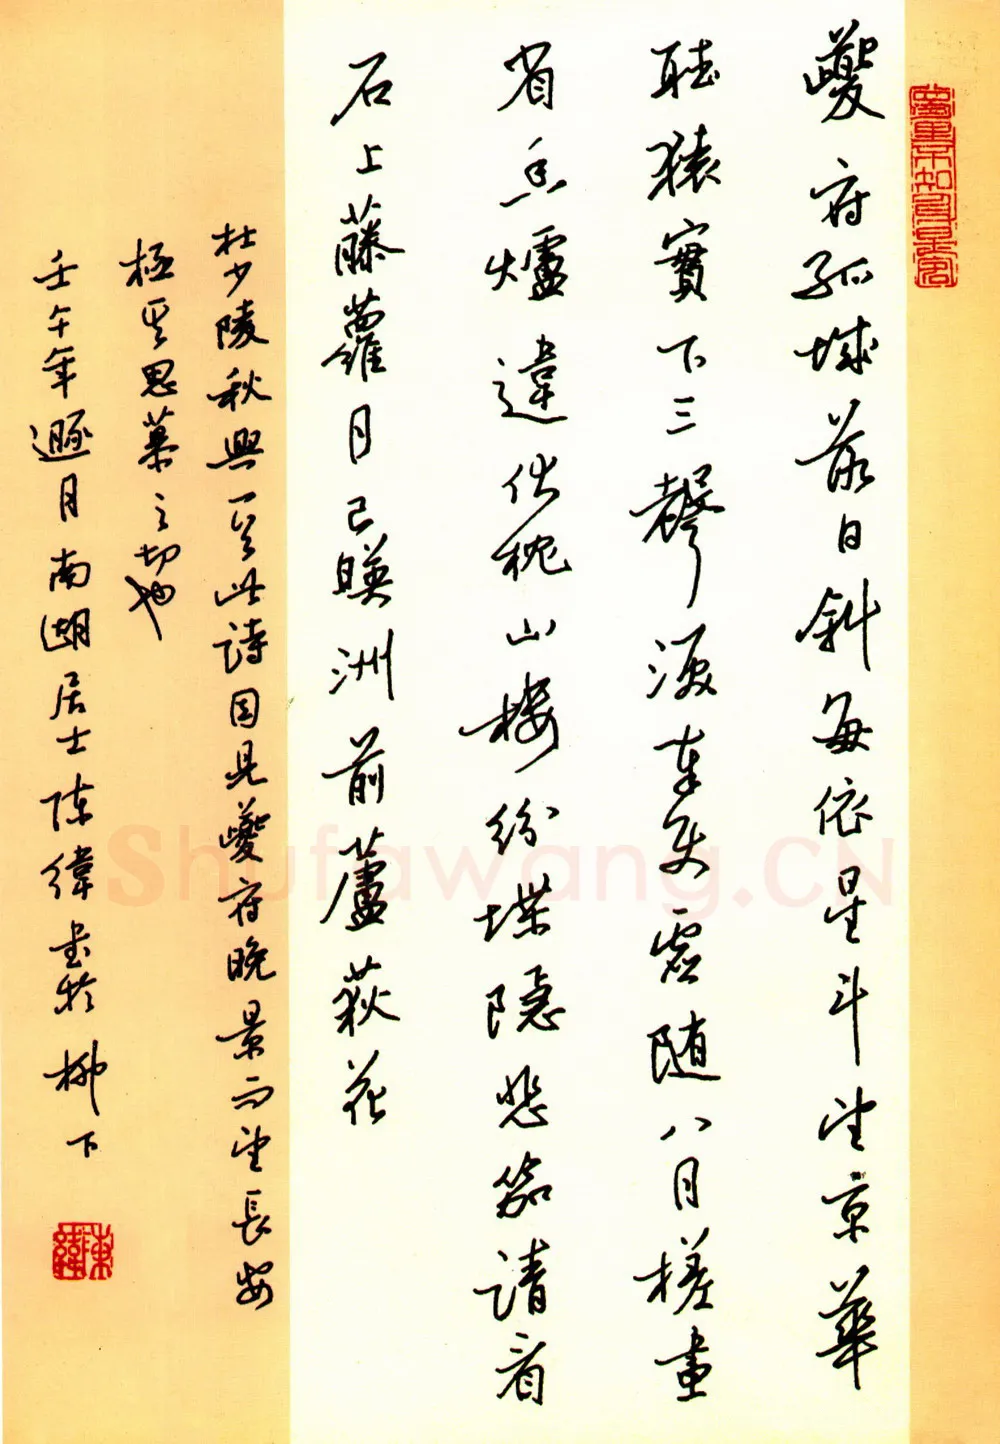 夔府孤城落日斜每依星斗望京華
聽猿實下三聲淚奉使虛随八月槎畫
省香爐違伏枕山樓粉堞隱悲笳請看
石上藤蘿月已映洲前蘆荻花
杜少陵秋興一百此詩因見夔府晚景而望長安
極其思慕之切也
壬午年遯月南湖居士陈緯書於柳下
陳緯
Shufawang.CN